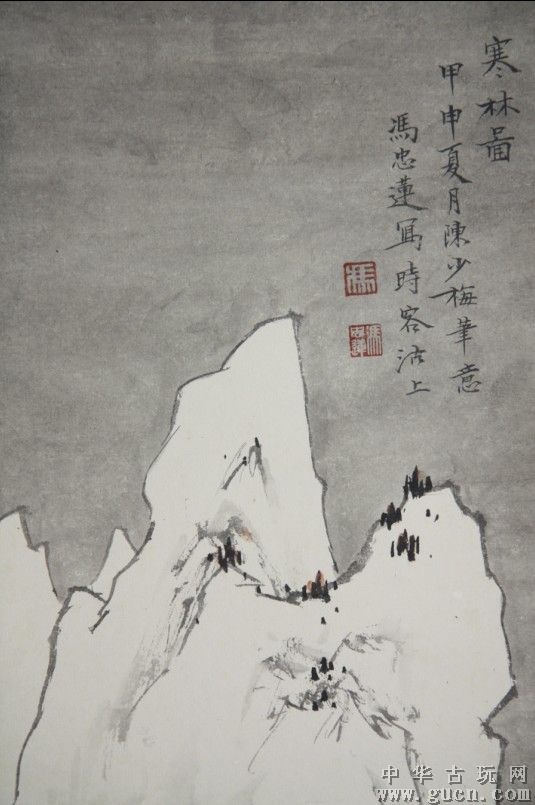 寒林啚
甲申夏月陳少梅筆意
馮忠蓮寫時客沽上
馮
馮忠蓮
中华古玩网
www.gucn.com